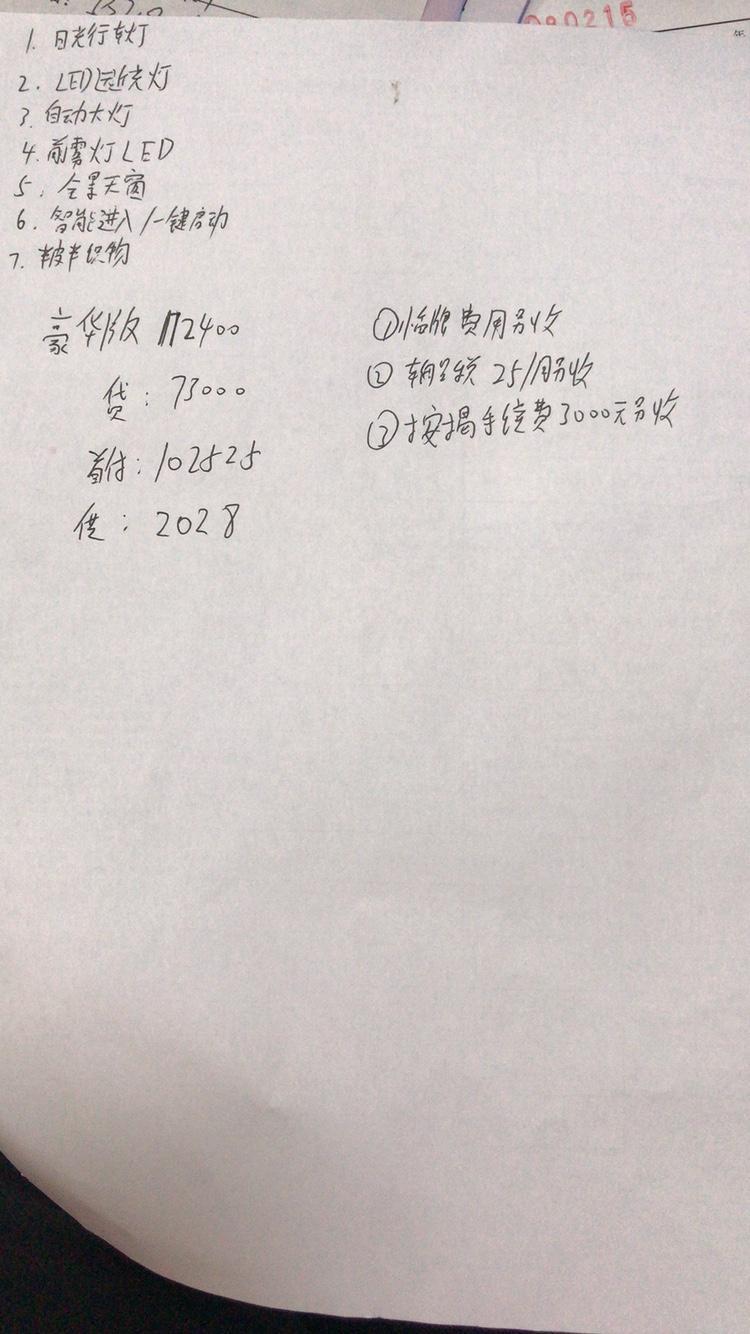 090215
1. 日光行车灯
2. LED远近光灯
3. 自动大灯
4. 前雾灯LED
5. 全景天窗
6. 智能进入/一键启动
7. 半皮半织物
豪华版 172400
贷:73000
首付:102525
供:2028
①临牌费用另收
② 车船税 25/月另收
③按揭手续费3000元另收